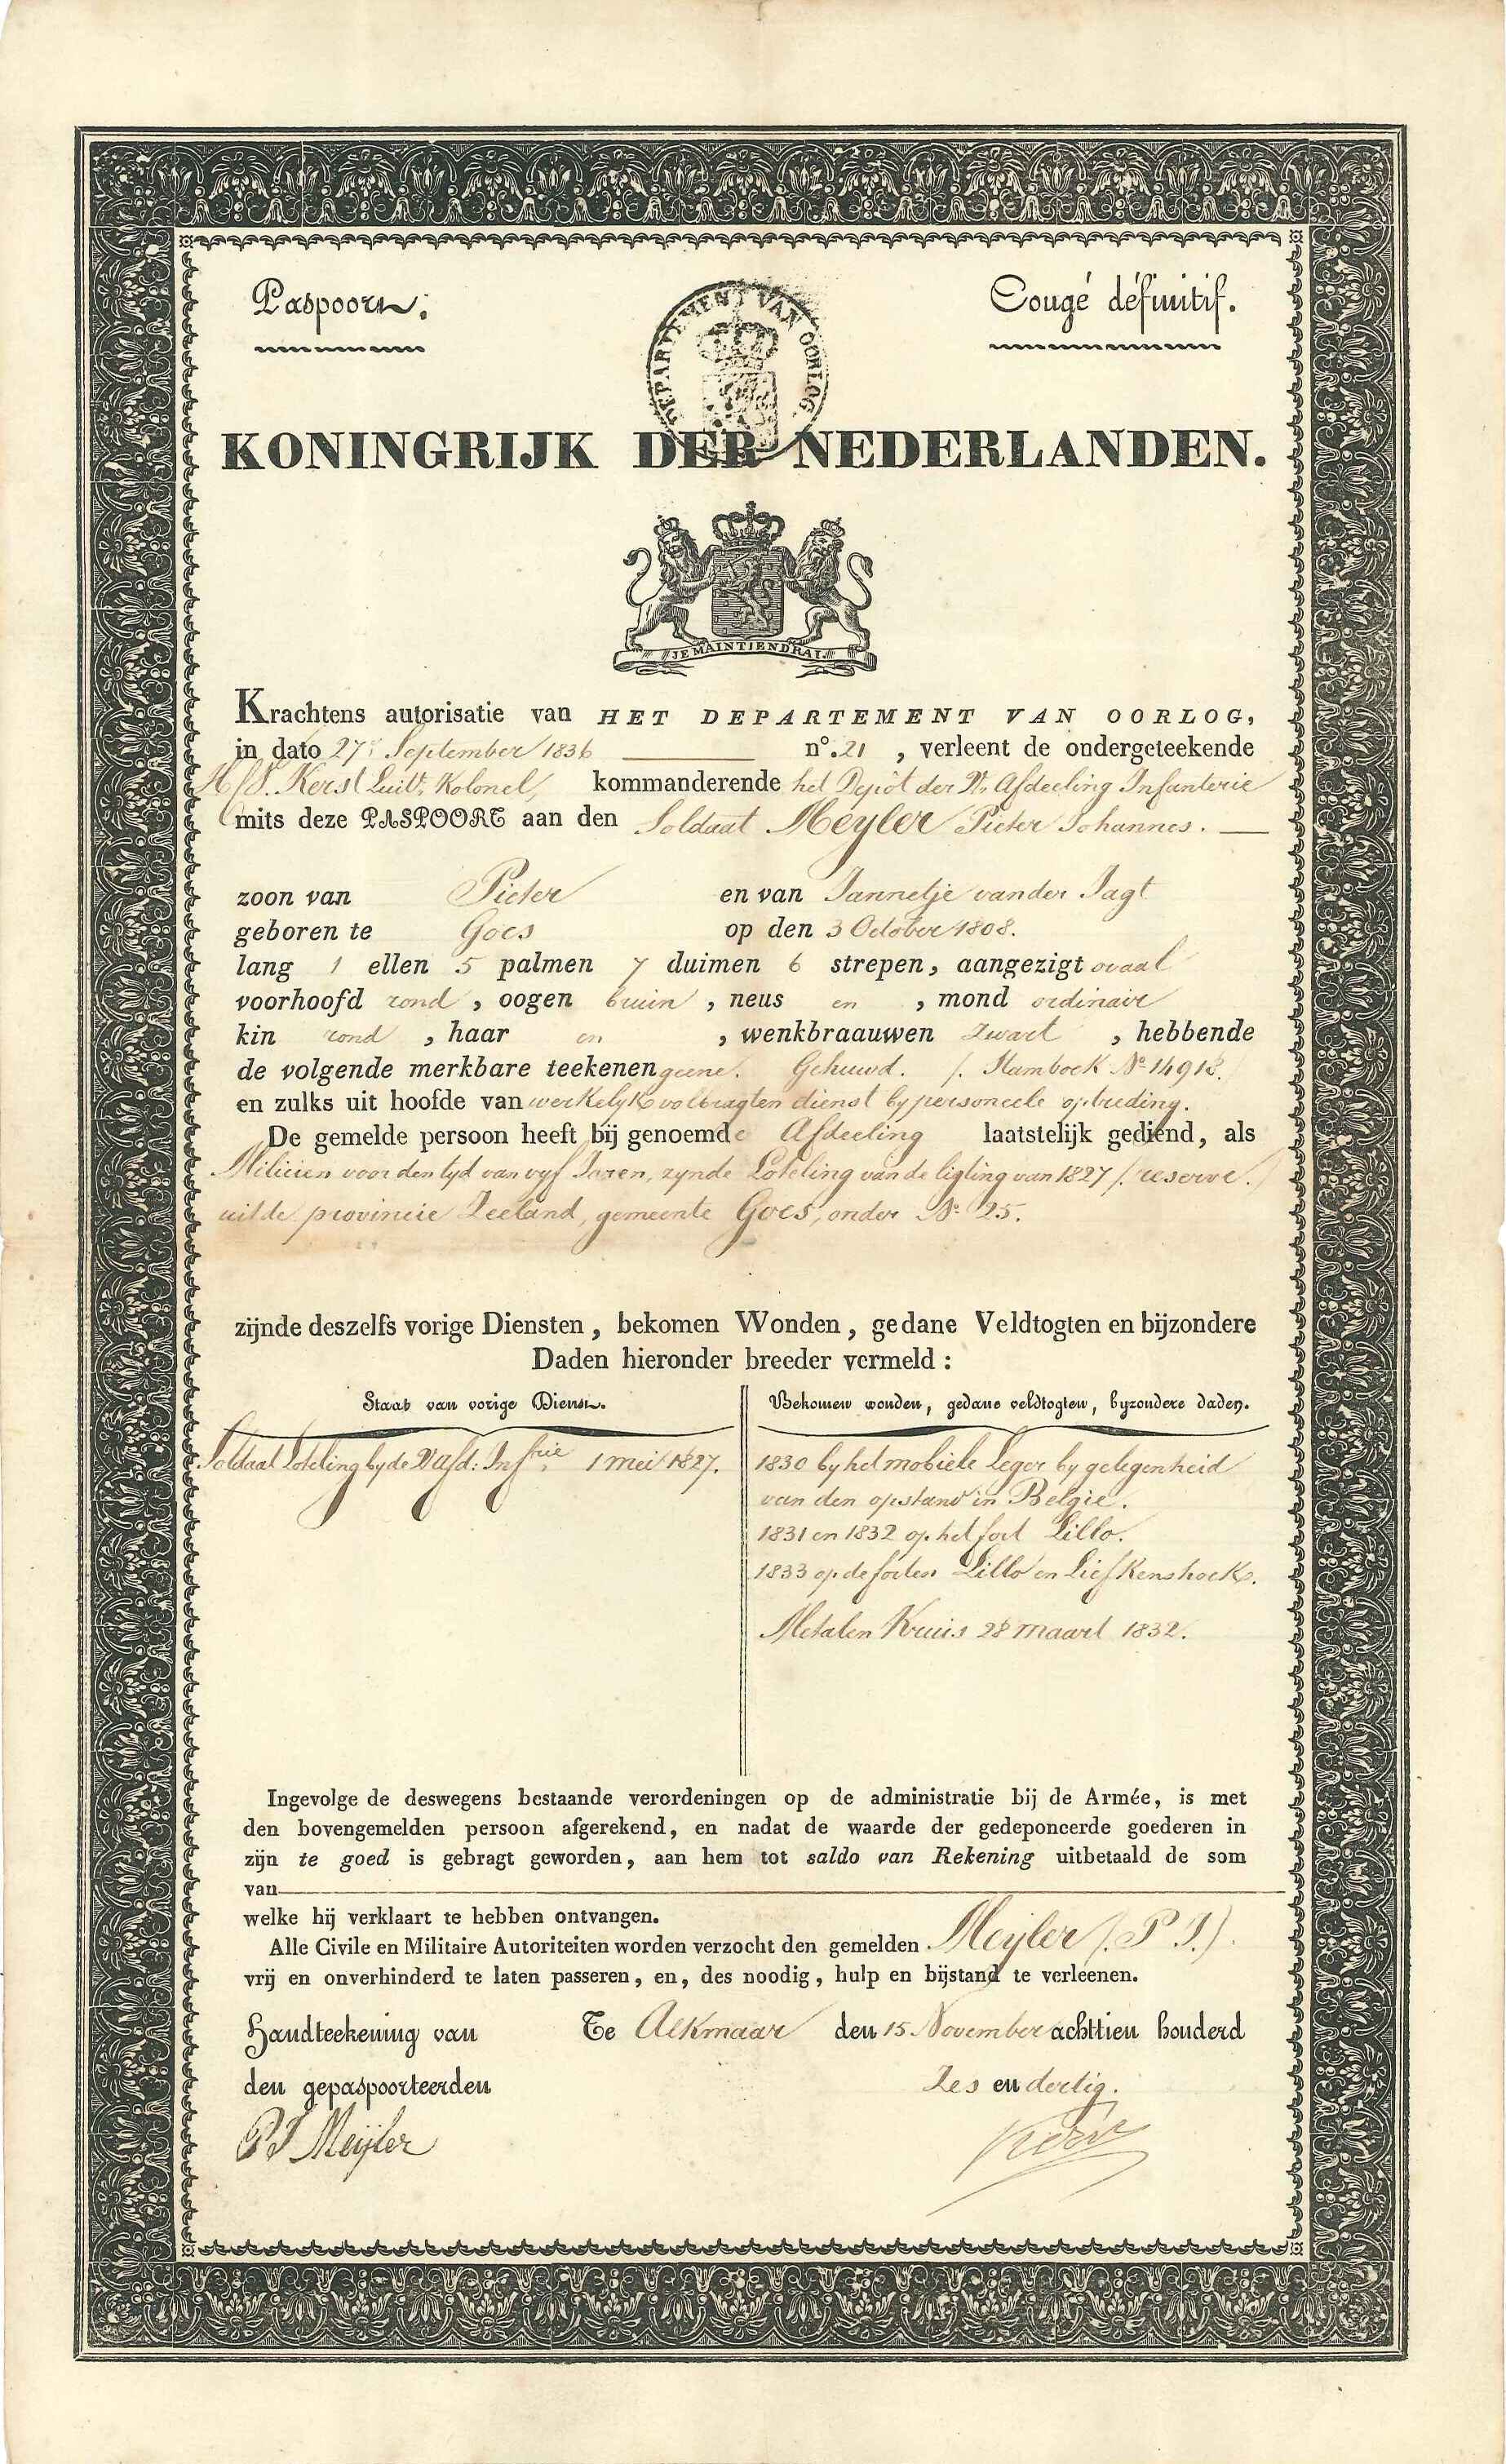 Paspoort.
Congé définitif.
DEPARTEMENT VAN OORLOG
KONINGRIJK DER NEDERLANDEN.
JE MAINTIENDRAI
Krachtens autorisatie van HET DEPARTEMENT VAN OORLOG,
in dato 27 September 1836 n°. 21 , verleent de ondergeteekende
Kerst Luitt. Kolonel, kommanderende het Depôt der Afdeeling Infanterie
mits deze PASPOORT aan den Soldaat Meyler Pieter Johannes.
zoon van Pieter en van Jannetje vander Jagt
geboren te Goes op den 3 October 1808.
lang 1 ellen 5 palmen 7 duimen 6 strepen, aangezigt ovaal
voorhoofd rond , oogen bruin , neus en , mond ordinair
kin rond , haar en , wenkbraauwen zwart , hebbende
de volgende merkbare teekenen geene. Gehuwd. /. Stamboek No 14918./
en zulks uit hoofde van werkelyk volbragten dienst by personeele optreding.
De gemelde persoon heeft bij genoemde Afdeeling laatstelijk gediend, als
Milicien voor den tyd van vyf Jaren, zynde Loteling van de ligting van 1827 /. reserve./
uit de provincie Zeeland, gemeente Goes, onder No 25.
zijnde deszelfs vorige Diensten, bekomen Wonden, gedane Veldtogten en bijzondere
Daden hieronder breeder vermeld :
Staat van vorige Dienst.
Soldaat Loteling by de Afd: Inftrie 1 mei 1827.
Bekomen wonden, gedane veldtogten, byzondere daden.
1830 by het mobiele Leger by gelegenheid
van den opstand in Belgie.
1831 en 1832 op het fort Lillo.
1833 op de forten Lillo en Liefkenshoek.
Metalen Kruis 28 maart 1832.
Ingevolge de deswegens bestaande verordeningen op de administratie bij de Armée, is met
den bovengemelden persoon afgerekend, en nadat de waarde der gedeponeerde goederen in
zijn te goed is gebragt geworden, aan hem tot saldo van Rekening uitbetaald de som
van
welke hij verklaart te hebben ontvangen.
Alle Civile en Militaire Autoriteiten worden verzocht den gemelden Meyler /. P J./.
vrij en onverhinderd te laten passeren, en, des noodig, hulp en bijstand te verleenen.
Handteekening van Te Alkmaar den 15 November achttien honderd
den gepaspoorteerden Zes en dertig.
PJ Meijler Kerst